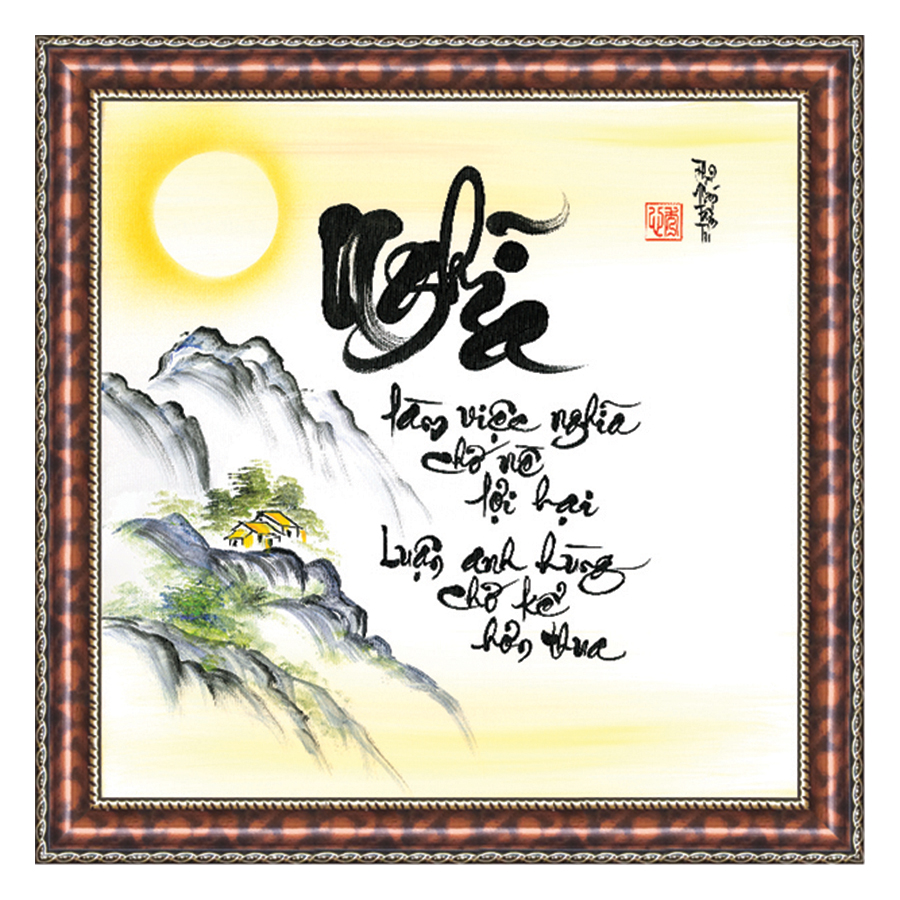 Nghĩa
làm việc nghĩa
chớ nề
lợi hại
Luận anh hùng
chớ kể
hơn thua